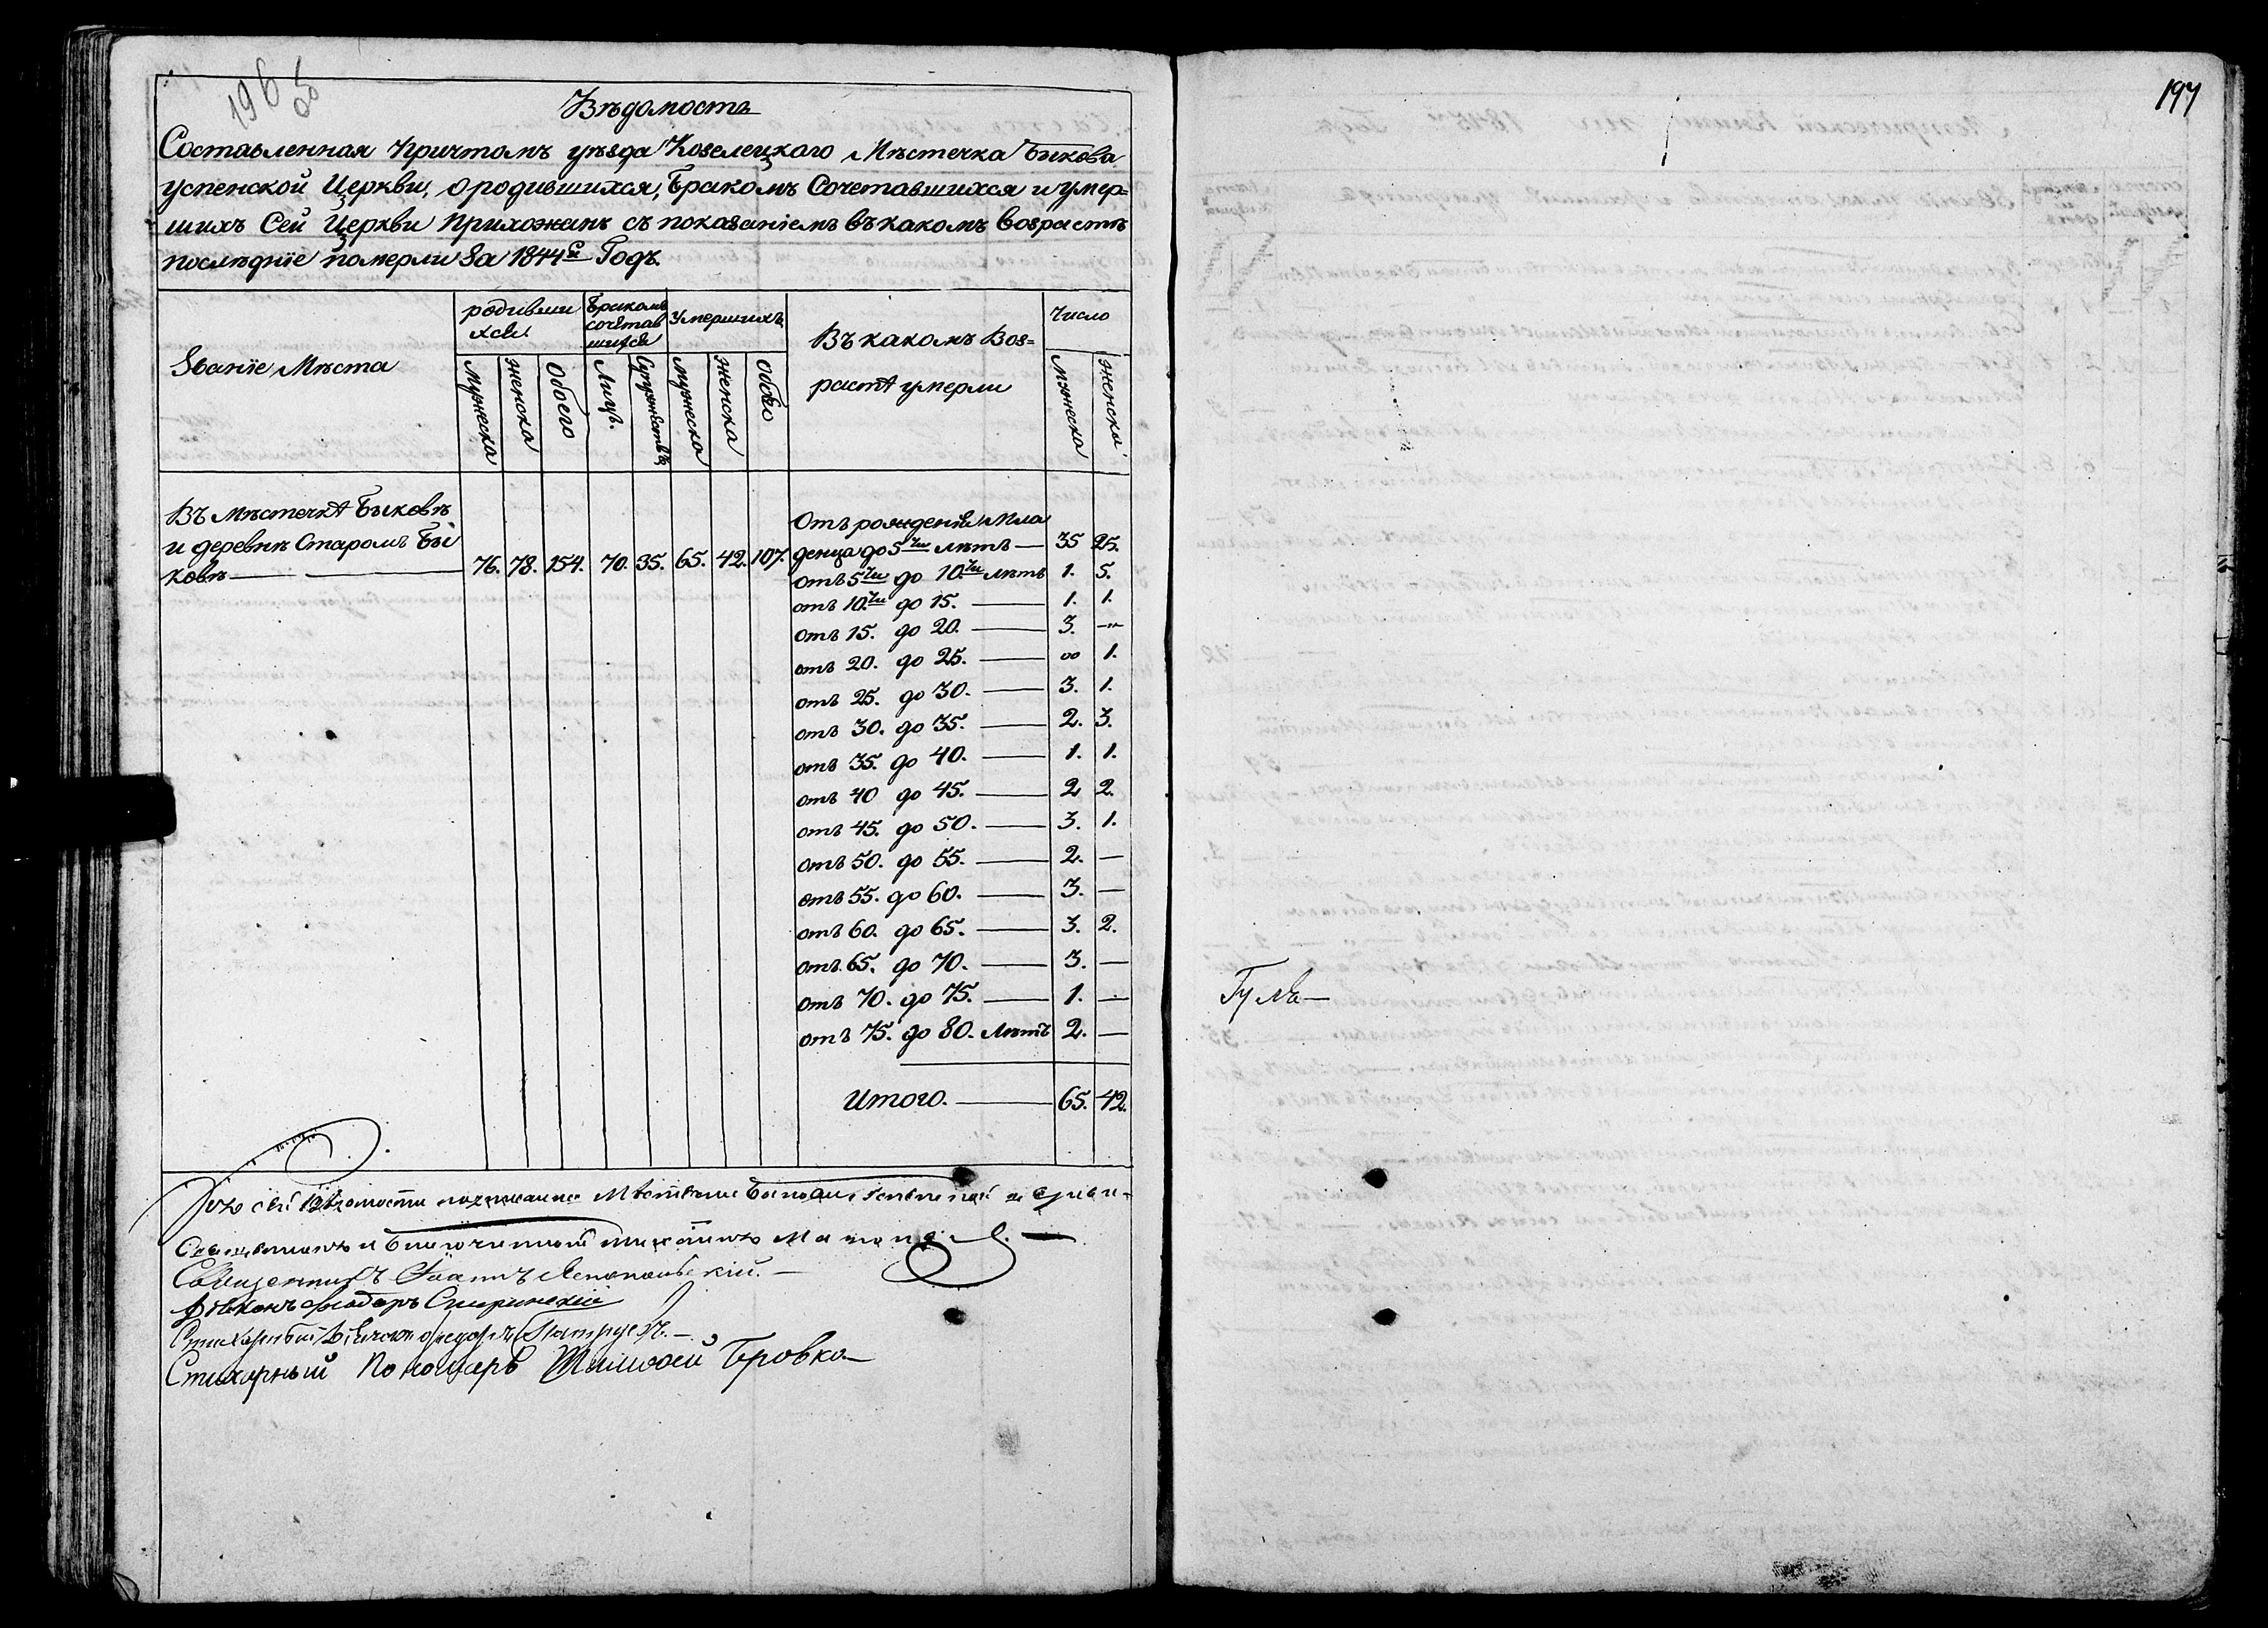 196 об
Вѣдомость
Составленная Причтомъ уѣзда Козелецкого Мѣстечка Быкова
Успенской Церкви, о родившихся, Бракомъ Сочетавшихся и умер=
шихъ Сей Церкви Прихожанъ съ показаніемъ въ какомъ возрастѣ
послѣдніе померли За 1844й Годъ.
Званіе Мѣста
родивши хся
Бракомъ сочетав шихся
Умершихъ
Въ какомъ Воз=
растѣ умерли
Число
Мужеска Женска Обоего Лицъ. Супружествъ Мужеска Женска Обоего Мужеска Женска
Въ Мѣстечкѣ Быковѣ
и деревнѣ Старомъ Бы
ковѣ — 76. 78. 154. 70. 35. 65. 42. 107.
Отъ рожденія Мла
денца до 5ти лѣтъ — 35 25.
отъ 5ти до 10.ти лѣтъ 1. 5.
отъ 10.ти до 15. — 1. 1.
отъ 15. до 20. — 3. —
отъ 20. до 25. — 00 1.
отъ 25. до 30. — 3. 1.
отъ 30. до 35. — 2. 3.
отъ 35. до 40. — 1. 1.
отъ 40 до 45. — 2 2.
отъ 45. до 50. — 3. 1.
отъ 50. до 55. — 2. —
отъ 55. до 60. — 3. —
отъ 60. до 65. — 3. 2.
отъ 65. до 70. — 3. —
отъ 70. до 75. — 1. —
отъ 75. до 80. Лѣтъ 2. —
Итого. — 65. 42.
сей вѣдомости Мѣстечка Быкова Успенской церкви
Священникъ и Благочинный
Священникъ Іоаннъ
Діаконъ Ѳеодоръ
Стихарный Ѳедоръ
Стихарный Пономарь Тимоѳей Бровко
197